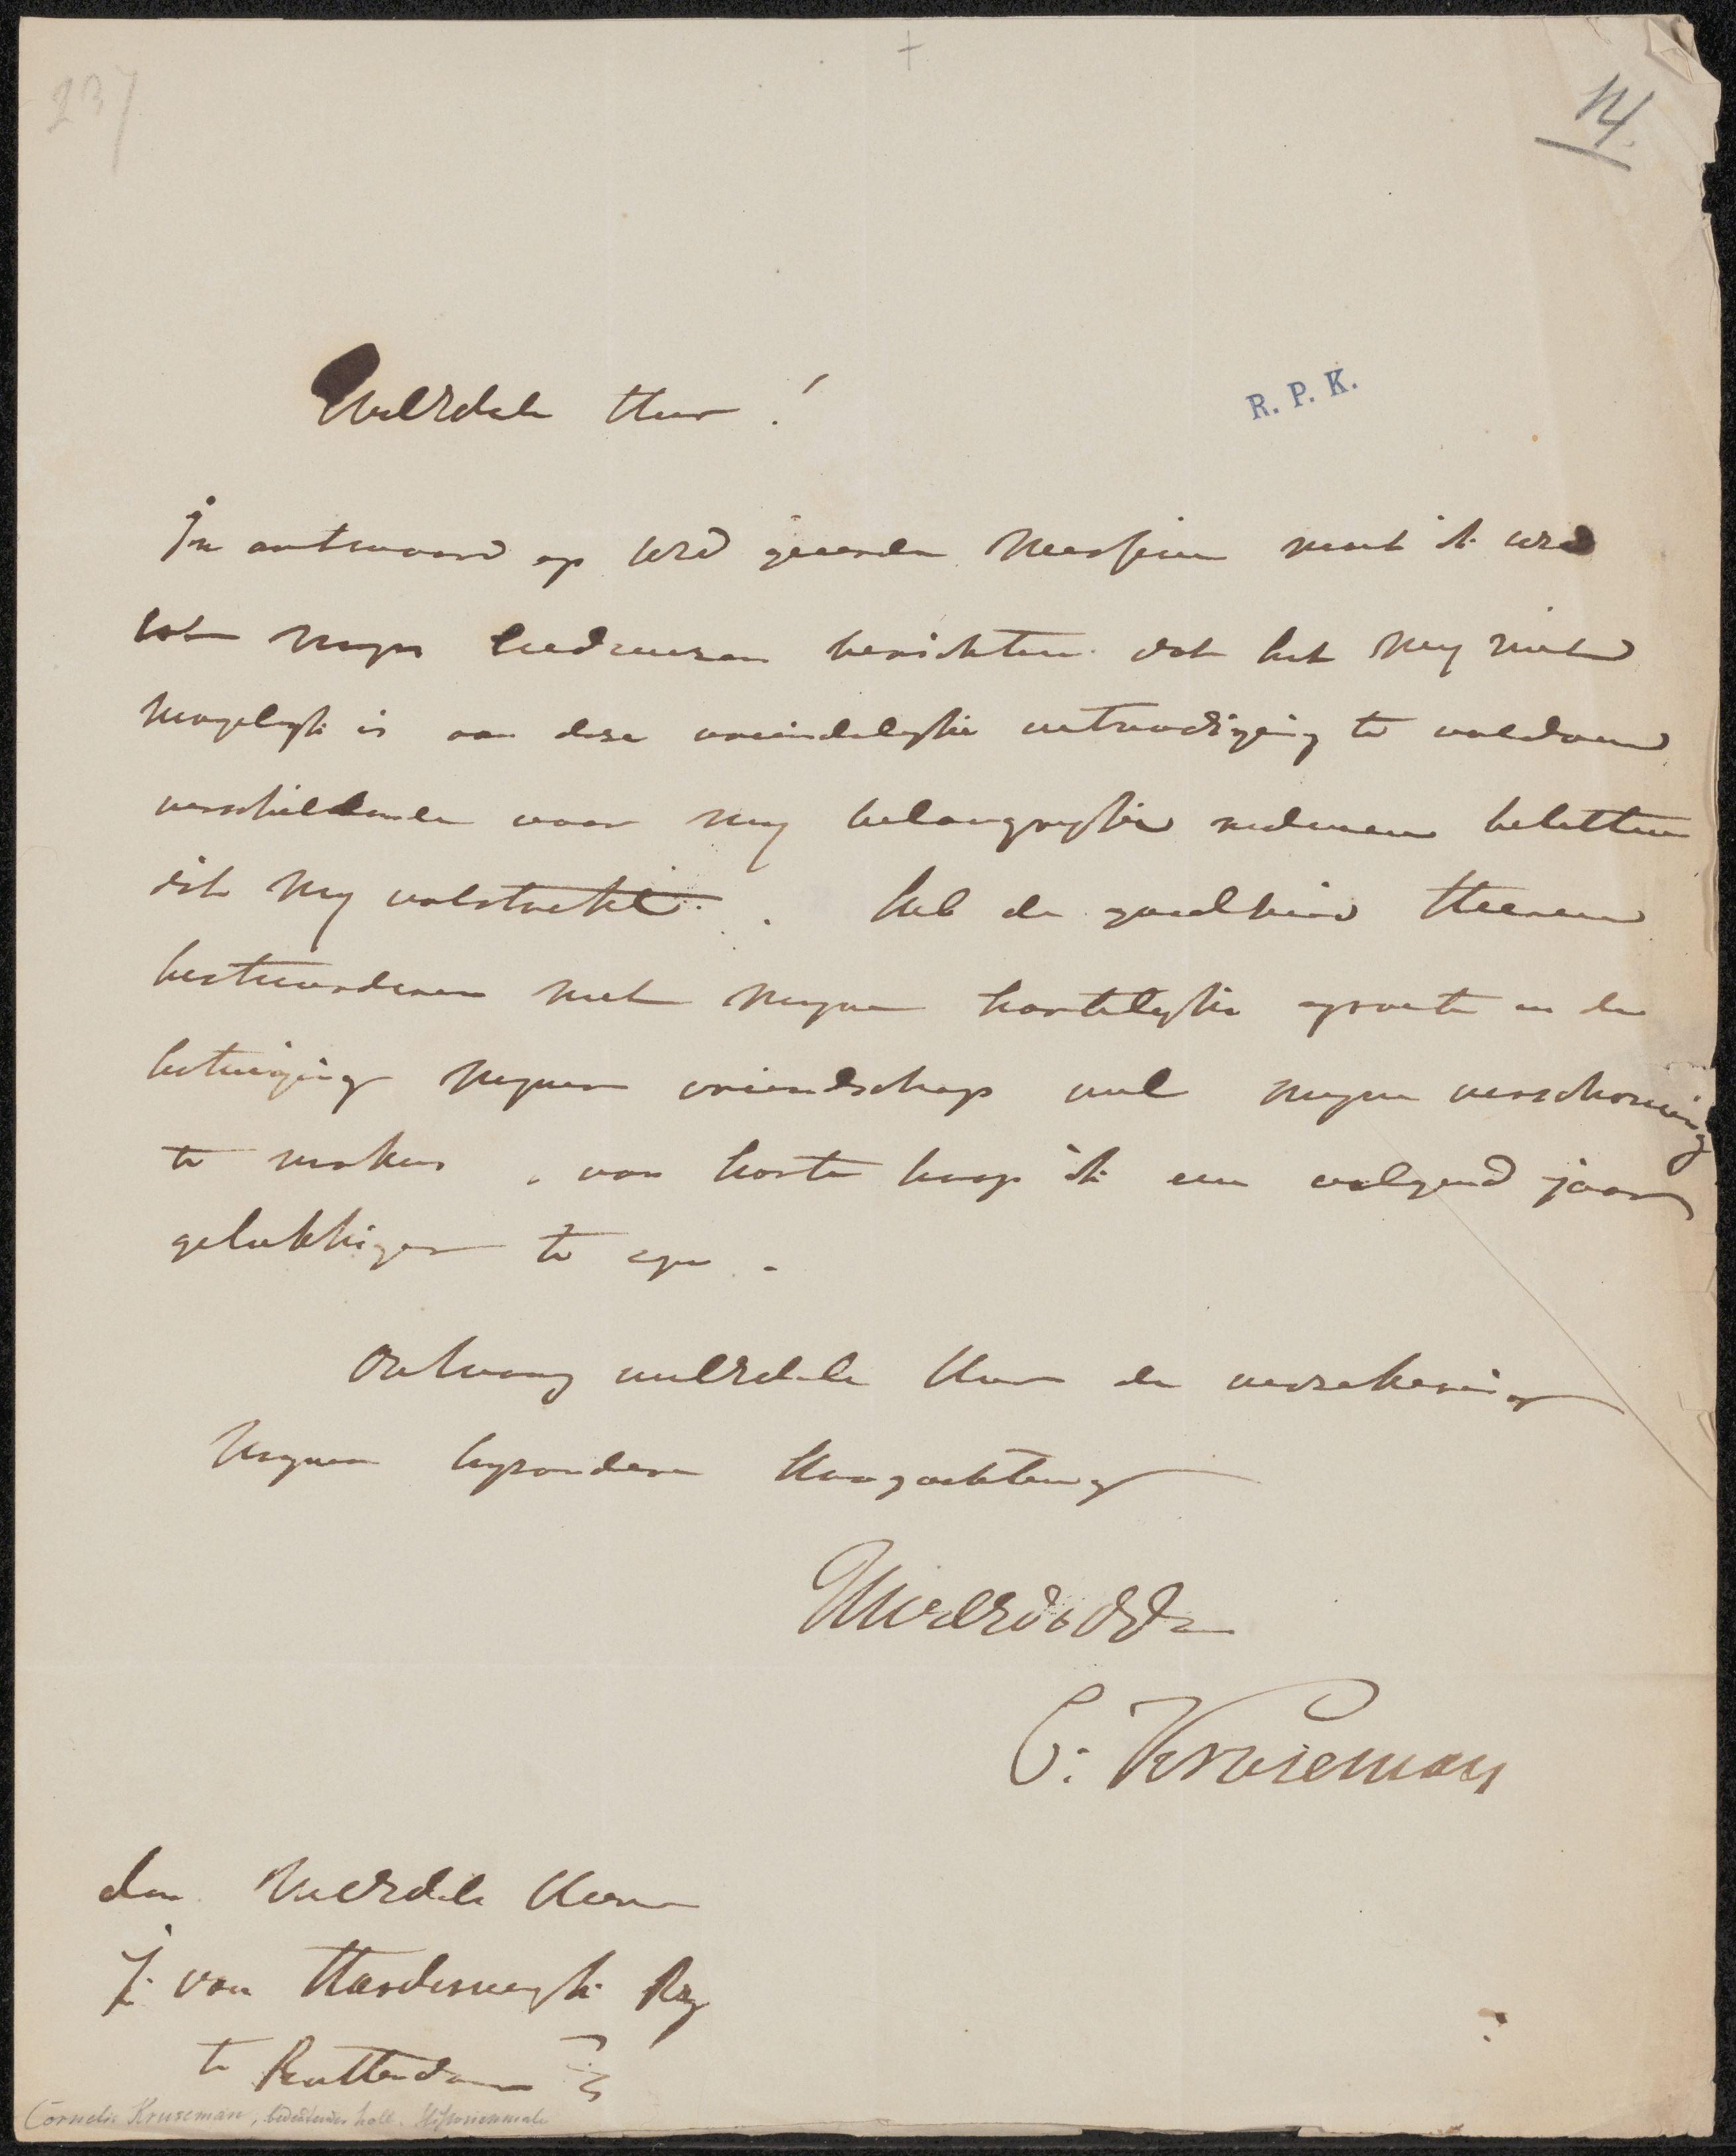 237
14.
R. P. K.
WelEdele Heer!
In antwoord op UEd geeerde missive moet ik UEd
tot myn leedwezen berichten dat het my niet
mogelyk is aan deze vriendelyke uitnoodiging te voldoen
verschillende voor my belangryke redenen beletten
dit my volstrekt. heb de goedheid Heeren
bestuurderen met mynen hartelyke groete en de
betuiging myner vriendschap wel myne verschooning
te maken, van harte hoop ik een volgend jaar
gelukkiger te zyn.
Ontvang welEdele Heer de verzekering
myner byzondere Hoogachting
C. Kruseman
den WelEdele Heer
J. van Harderwyk Rz
te Rotterdam
Cornelis Kruseman, bedeutender holl. Historienmaler